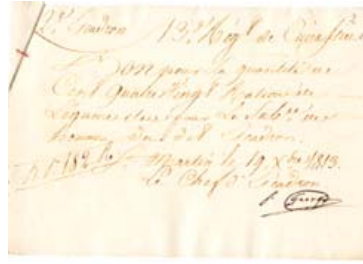 2e Escadron 13e Régt de Cuirassiers
Bon pour la quantité de
Cent quatre Vingt Rations de
Légumes
hommes du dit Escadron.
le 19 Xbre 1813.
Le Chef d'Escadron